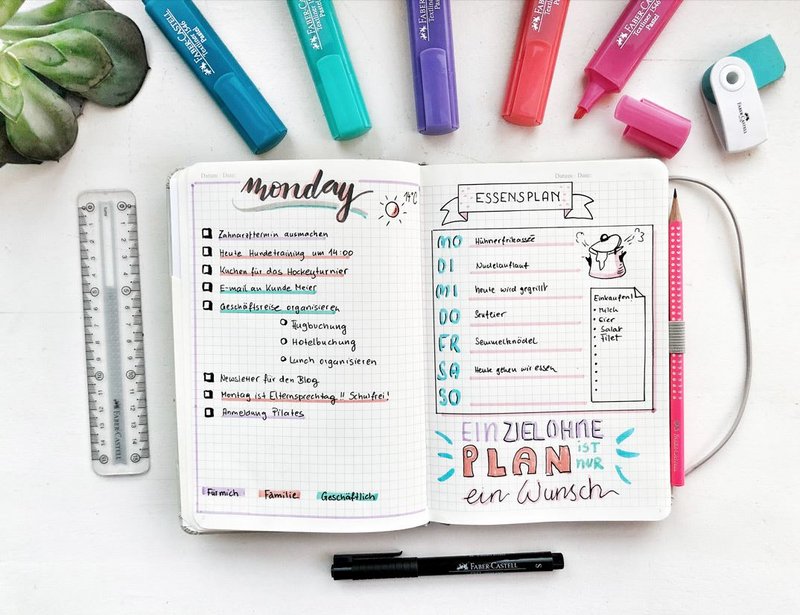 FABER-CASTELL
Textliner 1546
FABER-CASTELL
Textliner 1546
Pastel
FABER-CASTELL
Textliner 1546
Pastel
FABER-CASTELL
Textliner 1546
Pastel
FABER-CASTELL
Textliner 1546
Pastel
FABER-CASTELL
Datum · Date:
monday
14°C
Zahnarzttermin ausmachen
Heute Hundetraining um 14:00
Kuchen für das Hockeyturnier
E-mail an Kunde Meier
Geschäftsreise organisieren
Flugbuchung
Hotelbuchung
Lunch organisieren
Newsletter für den Blog
Montag ist Elternsprechtag !! Schulfrei!
Anmeldung Pilates
Für mich Familie Geschäftlich
Datum · Date:
ESSENSPLAN
MO Hühnerfrikassée
DI Nudelauflauf
MI heute wird gegrillt
DO Senfeier
FR Semmelknödel
SA Heute gehen wir essen
SO
Einkaufen!
Milch
Eier
Salat
Filet
EIN ZIEL OHNE
PLAN IST
NUR
ein Wunsch
FABER-CASTELL
FABER-CASTELL S